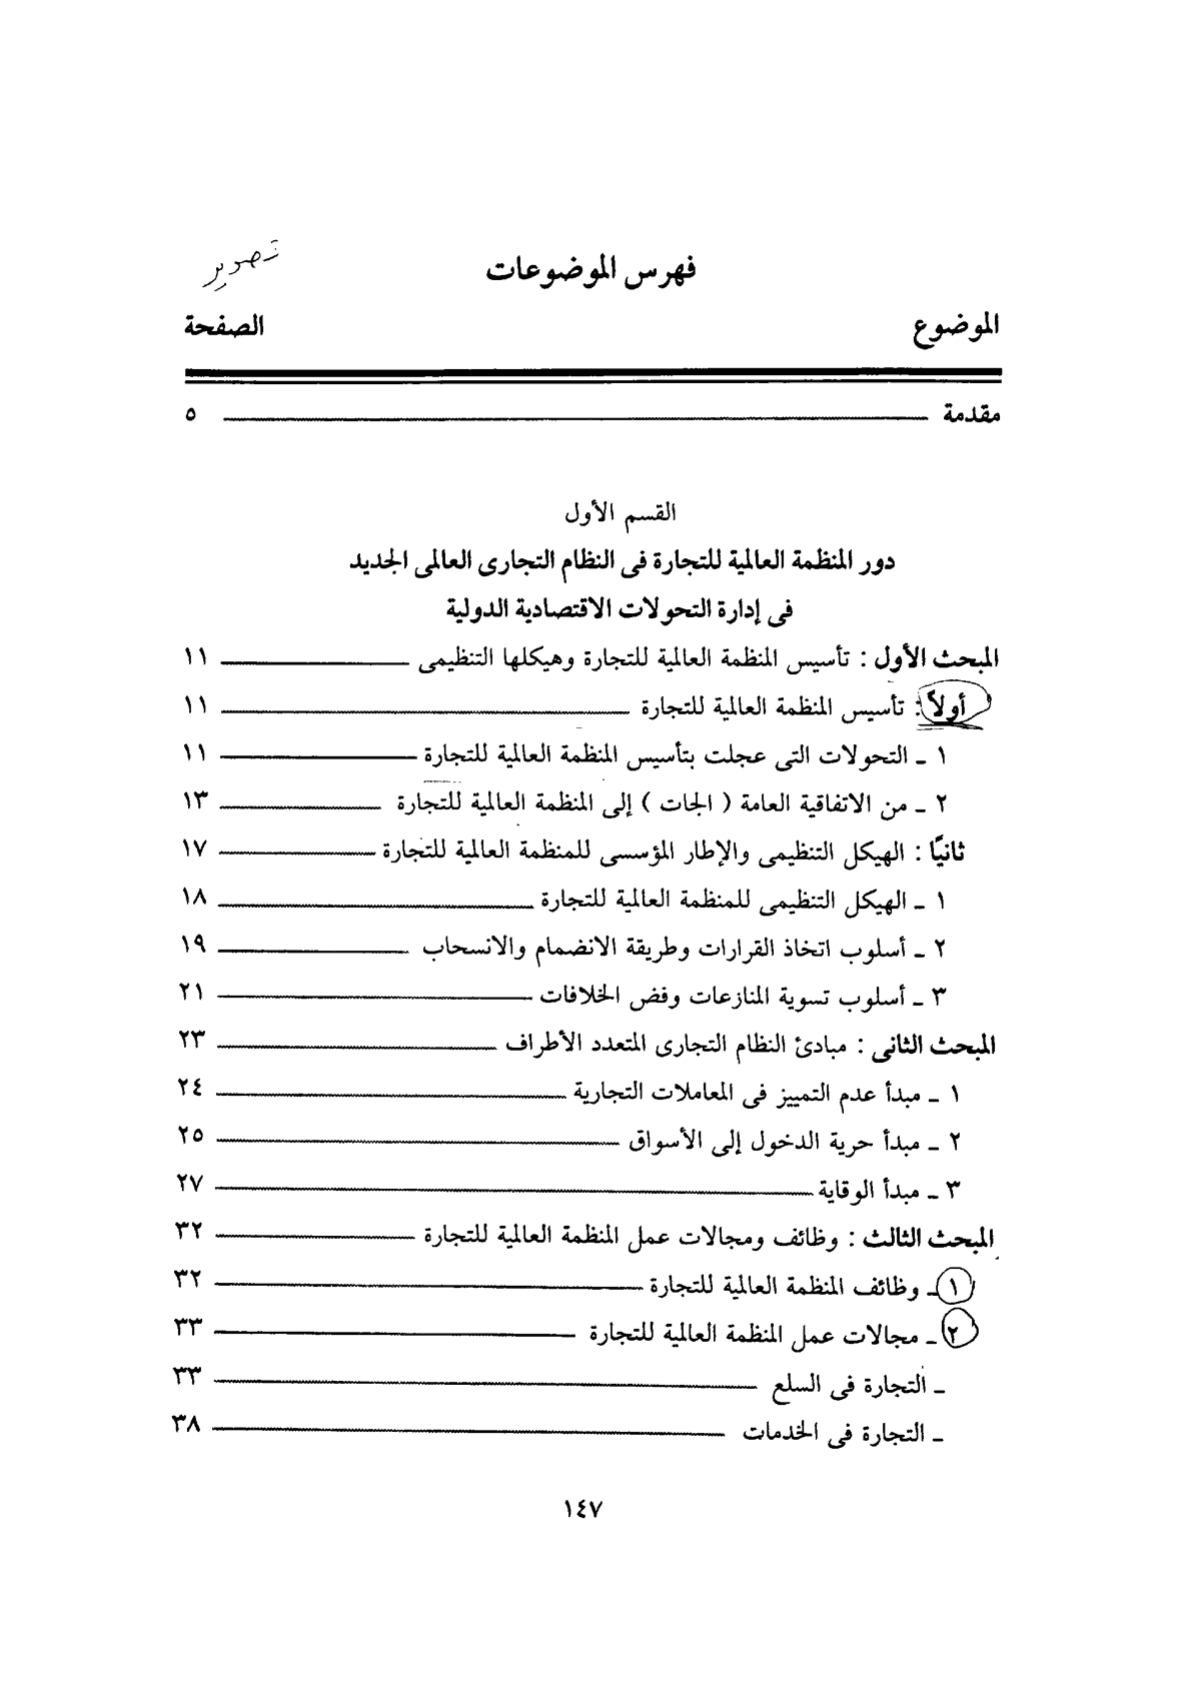 تصوير
فهرس الموضوعات
الموضوع الصفحة
مقدمة ٥
القسم الأول
دور المنظمة العالمية للتجارة فى النظام التجارى العالمى الجديد
فى إدارة التحولات الاقتصادية الدولية
المبحث الأول : تأسيس المنظمة العالمية للتجارة وهيكلها التنظيمى ١١
أولاً : تأسيس المنظمة العالمية للتجارة ١١
١ ـ التحولات التى عجلت بتأسيس المنظمة العالمية للتجارة ١١
٢ ـ من الاتفاقية العامة ( الجات ) إلى المنظمة العالمية للتجارة ١٣
ثانيًا : الهيكل التنظيمى والإطار المؤسسى للمنظمة العالمية للتجارة ١٧
١ ـ الهيكل التنظيمى للمنظمة العالمية للتجارة ١٨
٢ ـ أسلوب اتخاذ القرارات وطريقة الانضمام والانسحاب ١٩
٣ ـ أسلوب تسوية المنازعات وفض الخلافات ٢١
المبحث الثانى : مبادئ النظام التجارى المتعدد الأطراف ٢٣
١ ـ مبدأ عدم التمييز فى المعاملات التجارية ٢٤
٢ ـ مبدأ حرية الدخول إلى الأسواق ٢٥
٣ ـ مبدأ الوقاية ٢٧
المبحث الثالث : وظائف ومجالات عمل المنظمة العالمية للتجارة ٣٢
١ ـ وظائف المنظمة العالمية للتجارة ٣٢
٢ ـ مجالات عمل المنظمة العالمية للتجارة ٣٣
ـ التجارة فى السلع ٣٣
ـ التجارة فى الخدمات ٣٨
١٤٧